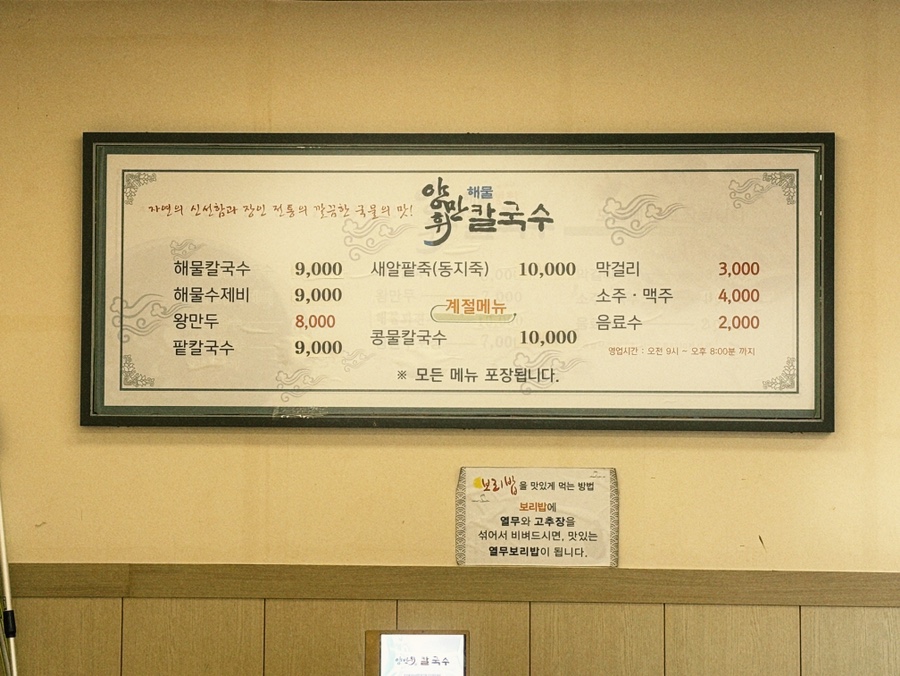 자연의 신선함과 장인 전통의 깔끔한 국물의 맛!
양만휘 해물 칼국수
해물칼국수 9,000
해물수제비 9,000
왕만두 8,000
팥칼국수 9,000
새알팥죽(동지죽) 10,000
계절메뉴
콩물칼국수 10,000
막걸리 3,000
소주 · 맥주 4,000
음료수 2,000
영업시간 : 오전 9시 ~ 오후 8:00분 까지
※ 모든 메뉴 포장됩니다.
보리밥을 맛있게 먹는 방법
보리밥에
열무와 고추장을
섞어서 비벼드시면, 맛있는
열무보리밥이 됩니다.
칼국수